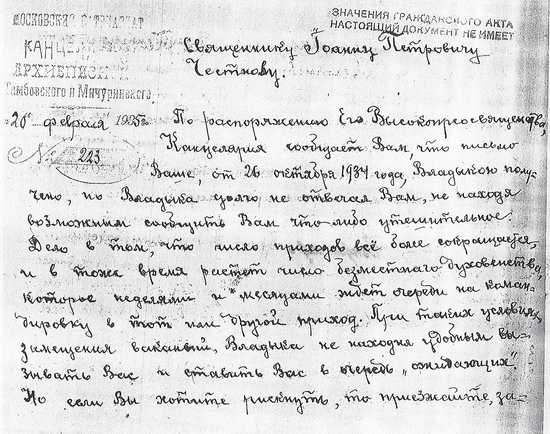 МОСКОВСКИЙ ПАТРИАРХАТ
КАНЦЕЛЯРИЯ
АРХИЕПИСКОПА
Тамбовского и Мичуринского
„26" февраля 1935
№ 223
ЗНАЧЕНИЯ ГРАЖДАНСКОГО АКТА
НАСТОЯЩИЙ ДОКУМЕНТ НЕ ИМЕЕТ
Священнику Іоанну Петровичу
Честнову.
По распоряжению Его Высокопреосвященства,
Канцелярия сообщает Вам что письмо
Ваше, от 26 октября 1934 года, Владыкою полу-
чено, но Владыка долго не отвечал Вам, не находя
возможным сообщить Вам что-либо утешительное.
Дело в том, что число приходов всё более сокращается,
и в тоже время растет число безместнаго духовенства,
которое неделями и месяцами ждет очереди на коман-
дировку в тот или другой приход. При таких условиях
замещения вакансий, Владыка не находил удобным вы-
зывать Вас и ставить Вас в очередь „ожидающих".
Но если Вы хотите рискнуть, то приезжайте, за-